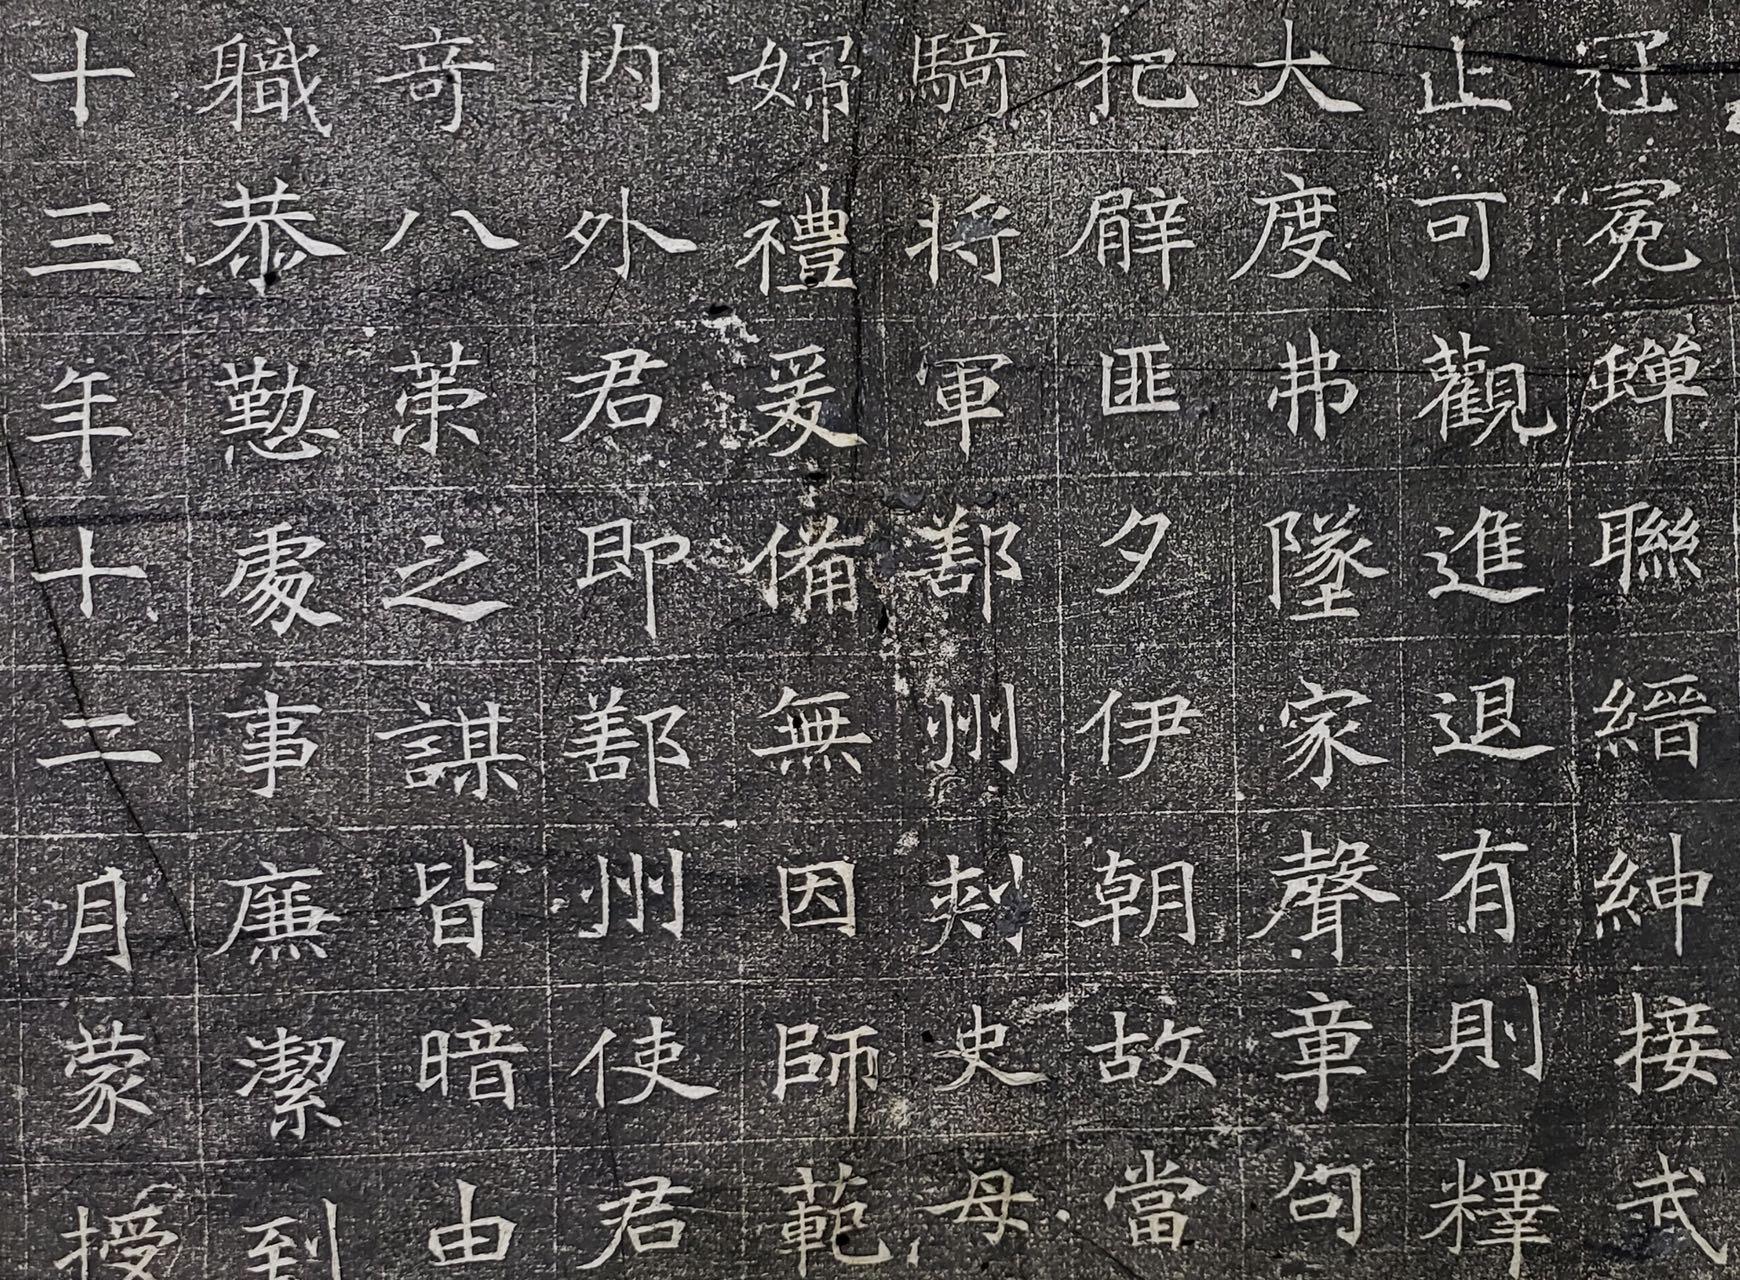 冠冕蟬聯縉紳接武
止可觀進退有則釋
大度弗墜家聲章句
把臂匪夕伊朝故當
騎將軍鄯州刾史母
婦禮爰備無因師範
内外君即鄯州使君
竒八茦之謀皆暗由
職恭懃處事廉潔到
十三年十二月蒙授